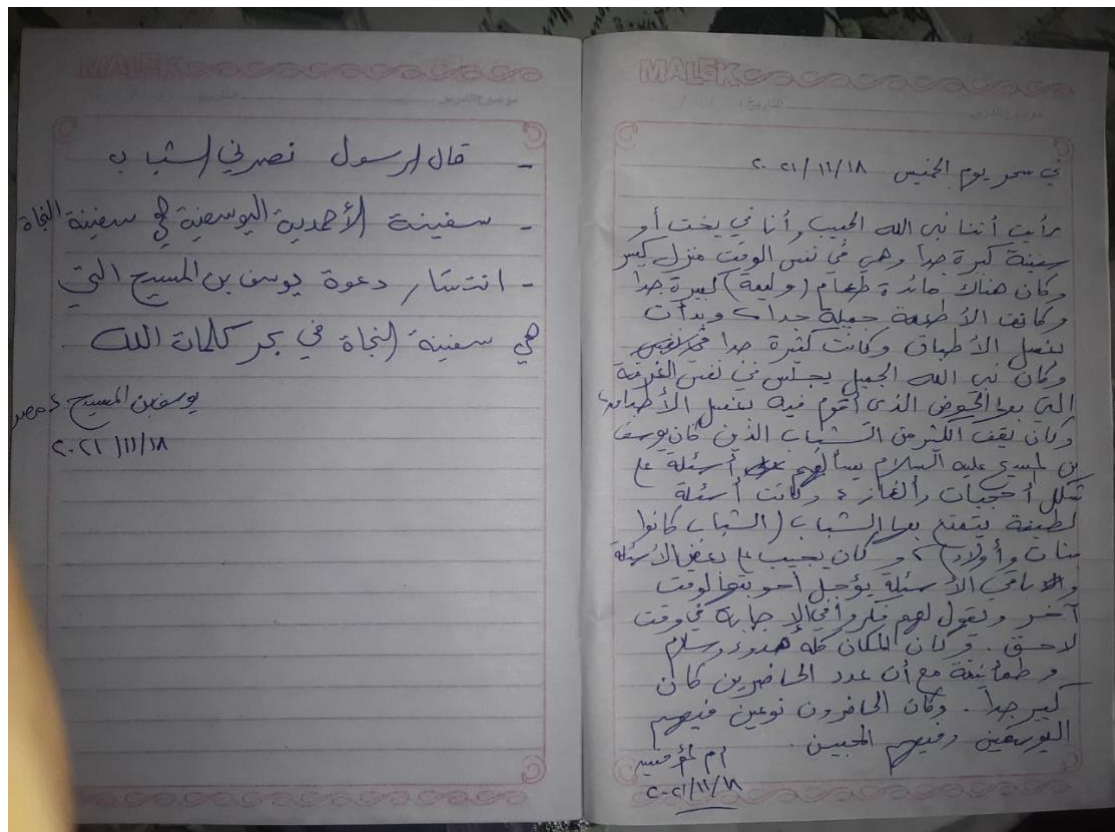 MALEK
التاريخ:
موضوع الدرس
في سحر يوم الخميس ٢٠٢١/١١/١٨
رأيت أننا نبي الله الحبيب وأنا في يخت أو
سفينة كبيرة جداً وهي في نفس الوقت منزل كبير
وكان هناك مائدة طعام (وليمة) كبيرة جداً
وكانت الأطعمة جميلة جداً، وبدأت
بغسل الأطباق وكانت كثيرة جداً
وكان نبي الله الجميل يجلس في نفس الغرفة
التي بها الحوض الذي أقوم فيه بغسل الأطباق،
وكان يقف الكثير من الشباب الذين كان يوسف
بن المسيح عليه السلام يسألهم أسئلة على
شكل أحجيات وألغاز، وكانت أسئلة
لطيفة يتمتع بها الشباب (الشباب كانوا
بنات وأولاد)، وكان يجيب على بعض الأسئلة
باقي الأسئلة يؤجل أجوبتها لوقت
آخر ويقول لهم فكروا في الإجابة في وقت
لاحق. وكان المكان كله هدوء وسلام
وطمأنينة مع أن عدد الحاضرين كان
كبير جداً. وكان الحاضرون نوعين فيهم
اليوسفيين وفيهم المحبين.
أم
٢٠٢١/١١/١٨
MALEK
التاريخ:
موضوع الدرس
- قال الرسول نصرني الشباب
- سفينة الأحمدية اليوسفية هي سفينة النجاة
- انتشار دعوة يوسف بن المسيح التي
هي سفينة النجاة في بحر كلمات الله
يوسف بن المسيح، مصر
٢٠٢١/١١/١٨